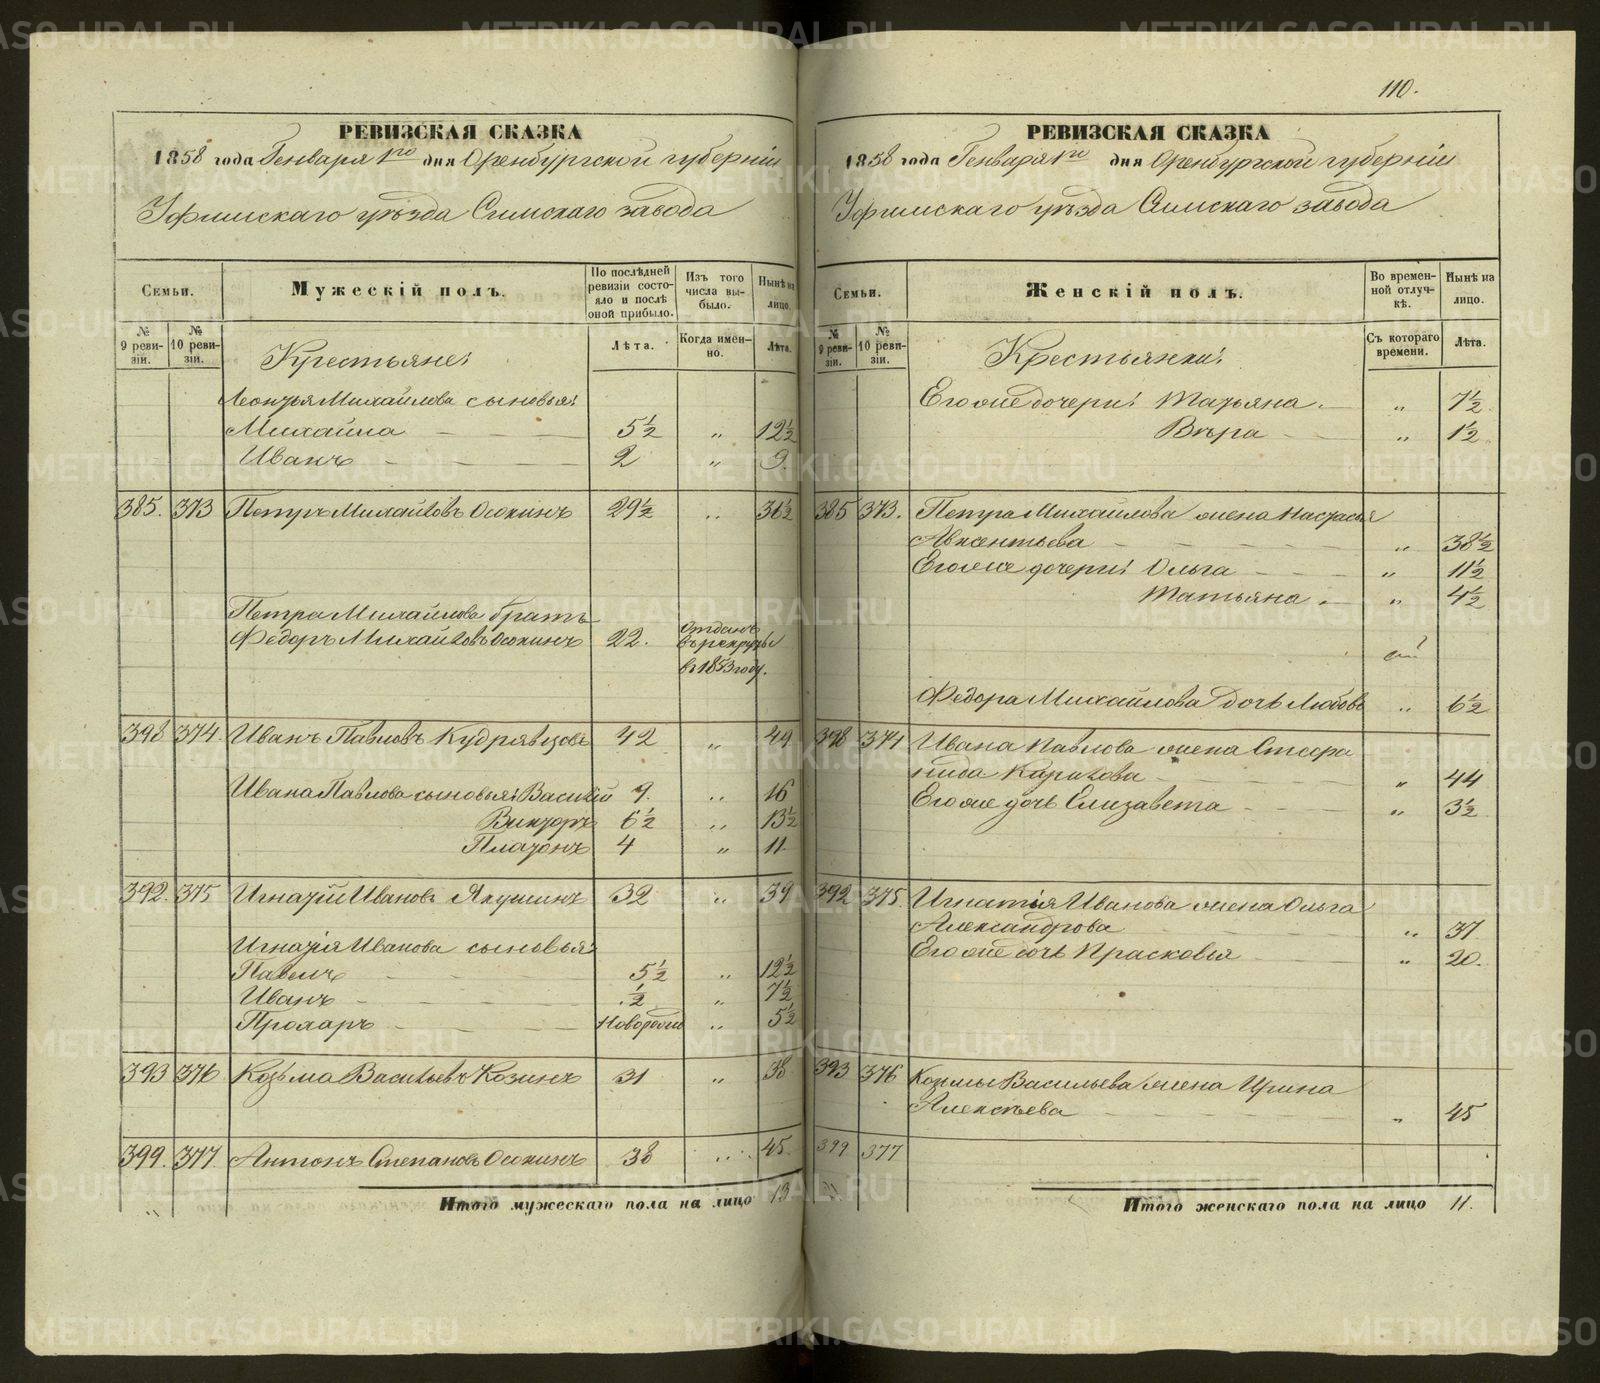 110.
РЕВИЗСКАЯ СКАЗКА
1858 года Генваря 1го дня Оренбургской губерніи
Уфимскаго уѣзда Симскаго завода
Семьи.
Мужескій полъ.
По послѣдней ревизіи состояло и послѣ оной прибыло.
Изъ того числа выбыло.
Нынѣ на лицо.
№ 9 ревизіи.
№ 10 ревизіи.
Крестьяне:
Лѣта.
Когда именно.
Лѣта.
Леонтья Михайлова сыновья:
Михайла 5½ „ 12½
Иванъ 2 „ 9.
385. 373 Петръ Михайловъ Осокинъ 29½ „ 36½
Петра Михайлова братъ
Федоръ Михайловъ Осокинъ 22. Отданъ
въ рекруты
въ 1853 году.
398 374 Иванъ Павловъ Кудрявцовъ 42 „ 49
Ивана Павлова сыновья: Василій 9. „ 16
Викторъ 6½ „ 13½
Платонъ 4 „ 11
392. 375 Игнатій Ивановъ Якушинъ 32 „ 39
Игнатія Иванова сыновья:
Павелъ 5½ „ 12½
Иванъ ½ „ 7½
Прохоръ „ 5½
393 376 Козьма Васильевъ Козинъ 31 „ 38
399. 377. Антонъ Степановъ Осокинъ 38 „ 45.
Итого мужескаго пола на лицо 13
РЕВИЗСКАЯ СКАЗКА
1858 года Генваря 1го дня Оренбургской губерніи
Уфимскаго уѣзда Симскаго завода
Семьи.
Женскій полъ.
Во временной отлучкѣ.
Нынѣ на лицо.
№ 9 ревизіи.
№ 10 ревизіи.
Крестьянки:
Съ котораго времени.
Лѣта.
Его же дочери: Татьяна „ 7½
Вѣра „ 1½
385 373. Петра Михайлова жена Настасья
Авксентьева „ 38½
Его же дочери: Ольга „ 11½
Татьяна „ 4½
Федора Михайлова дочь Любовь „ 6½
398 374 Ивана Павлова жена Стефа
нида Карпова „ 44
Его же дочь Елизавета „ 3½
392 375. Игнатія Иванова жена Ольга
Александрова „ 37
Его же дочь Прасковья „ 20.
393 376 Козмы Васильева жена Ирина
Алексѣева „ 45
399 377
Итого женскаго пола на лицо 11.
METRIKI.GASO-URAL.RU